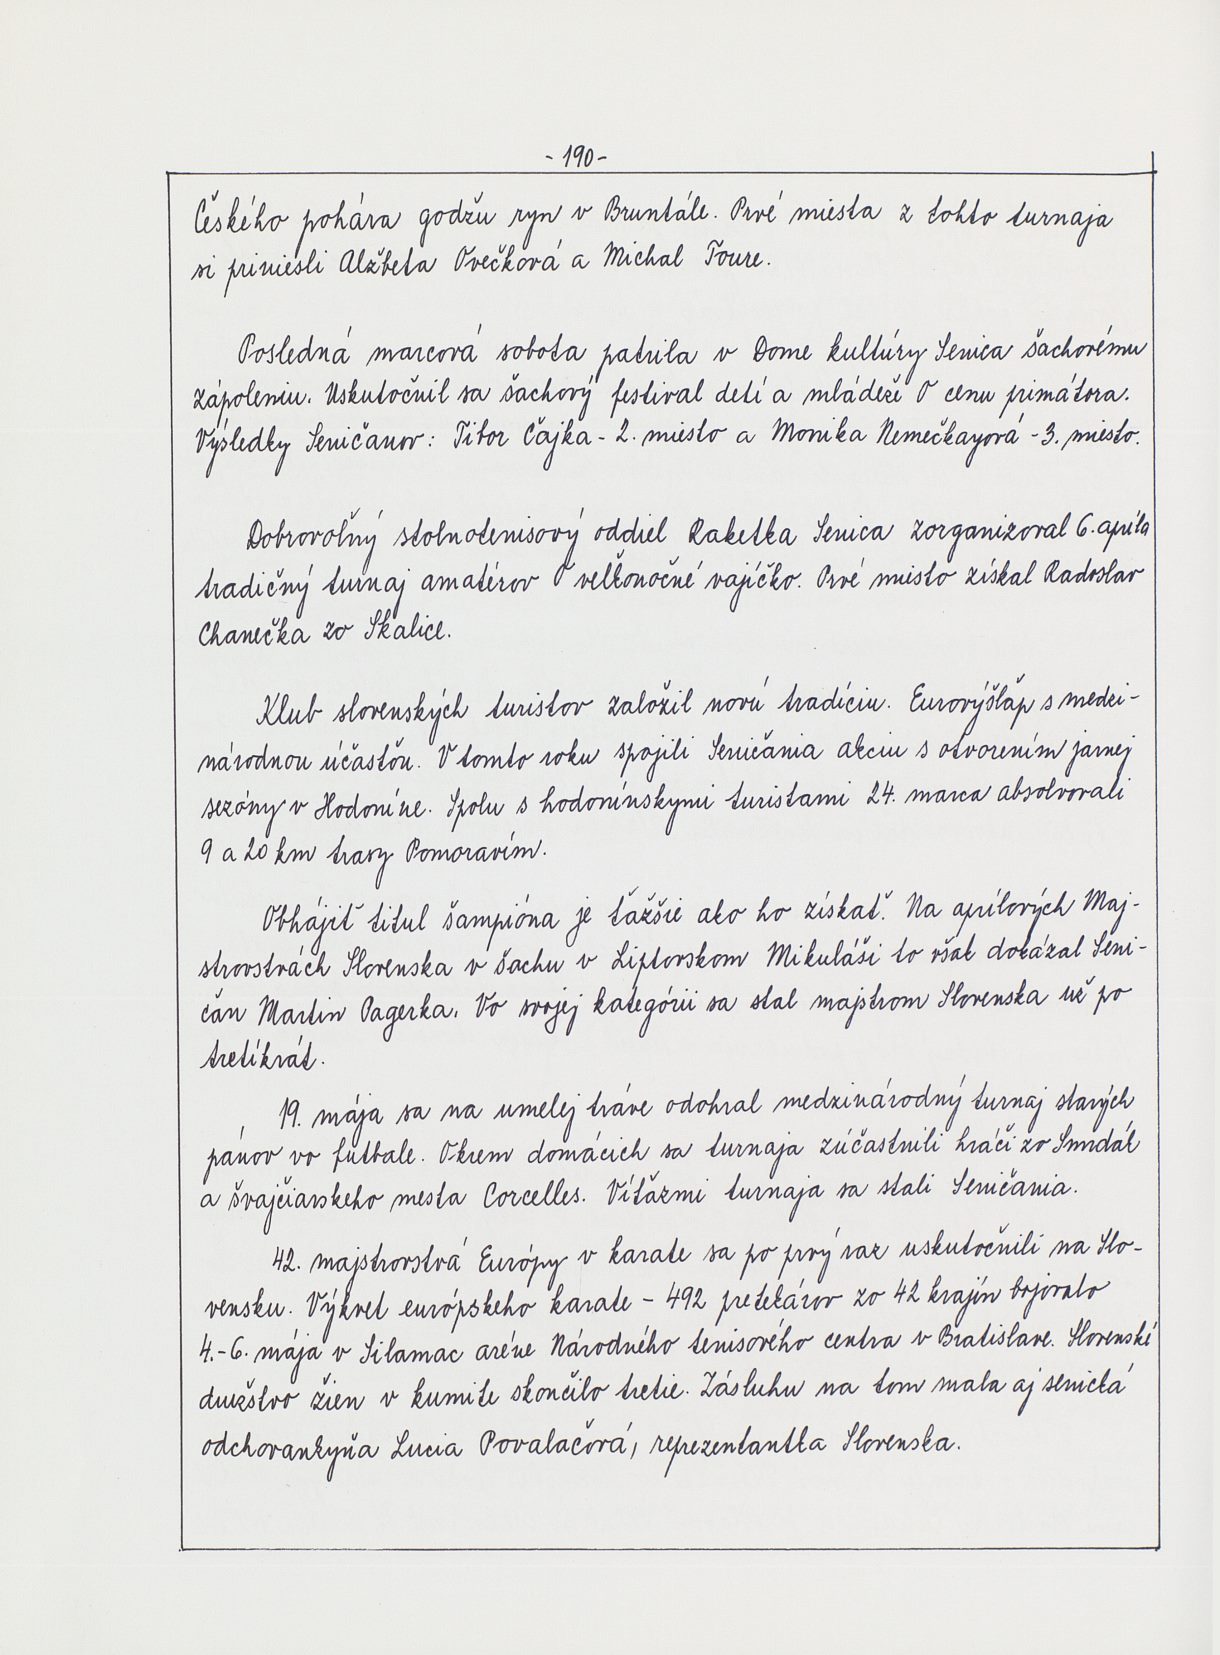 - 190 -
Českého pohára godžu ryn v Bruntále. Prvé miesta z tohto turnaja
si priniesli Alžbeta Ovečková a Michal Toure.
Posledná marcová sobota patrila v Dome kultúry Senica šachorému
zápoleniu. Uskutočnil sa šachový festival detí a mládeže O cenu primátora.
Výsledky Seničanov: Tibor Čajka - 2. miesto a Monika Nemečkayová - 3. miesto.
Dobrovoľný stolnotenisový oddiel Raketka Senica zorganizoval 6. apríla
tradičný turnaj amatérov O veľkonočné vajíčko. Prvé miesto získal Radoslav
Chanečka zo Skalice.
Klub slovenských turistov založil novú tradíciu. Eurovýšľap s medzi-
národnou účasťou. V tomto roku spojili Seničania akciu s otvorením jarnej
sezóny v Hodoníne. Spolu s hodonínskymi turistami 24. marca absolvovali
9 a 20 km trasy Pomoravím.
Obhájiť titul šampióna je ťažšie ako ho získať. Na aprílových Maj-
strovstvách Slovenska v šachu v Liptovskom Mikuláši to však dokázal Seni-
čan Martin Pagerka. Vo svojej kategórii sa stal majstrom Slovenska už po
tretíkrát.
19. mája sa na umelej tráve odohral medzinárodný turnaj starých
pánov vo futbale. Okrem domácich sa turnaja zúčastnili hráči zo Smrdák
a švajčiarskeho mesta Corcelles. Víťazmi turnaja sa stali Seničania.
42. majstrovstvá Európy v karate sa po prvý raz uskutočnili na Slo-
vensku. Výkvet európskeho karate - 492 pretekárov zo 42 krajín bojovalo
4.-6. mája v Silamac aréne Národného tenisového centra v Bratislave. Slovenské
družstvo žien v kumite skončilo tretie. Zásluhu na tom mala aj senická
odchovankyňa Lucia Povalačová, reprezentantka Slovenska.